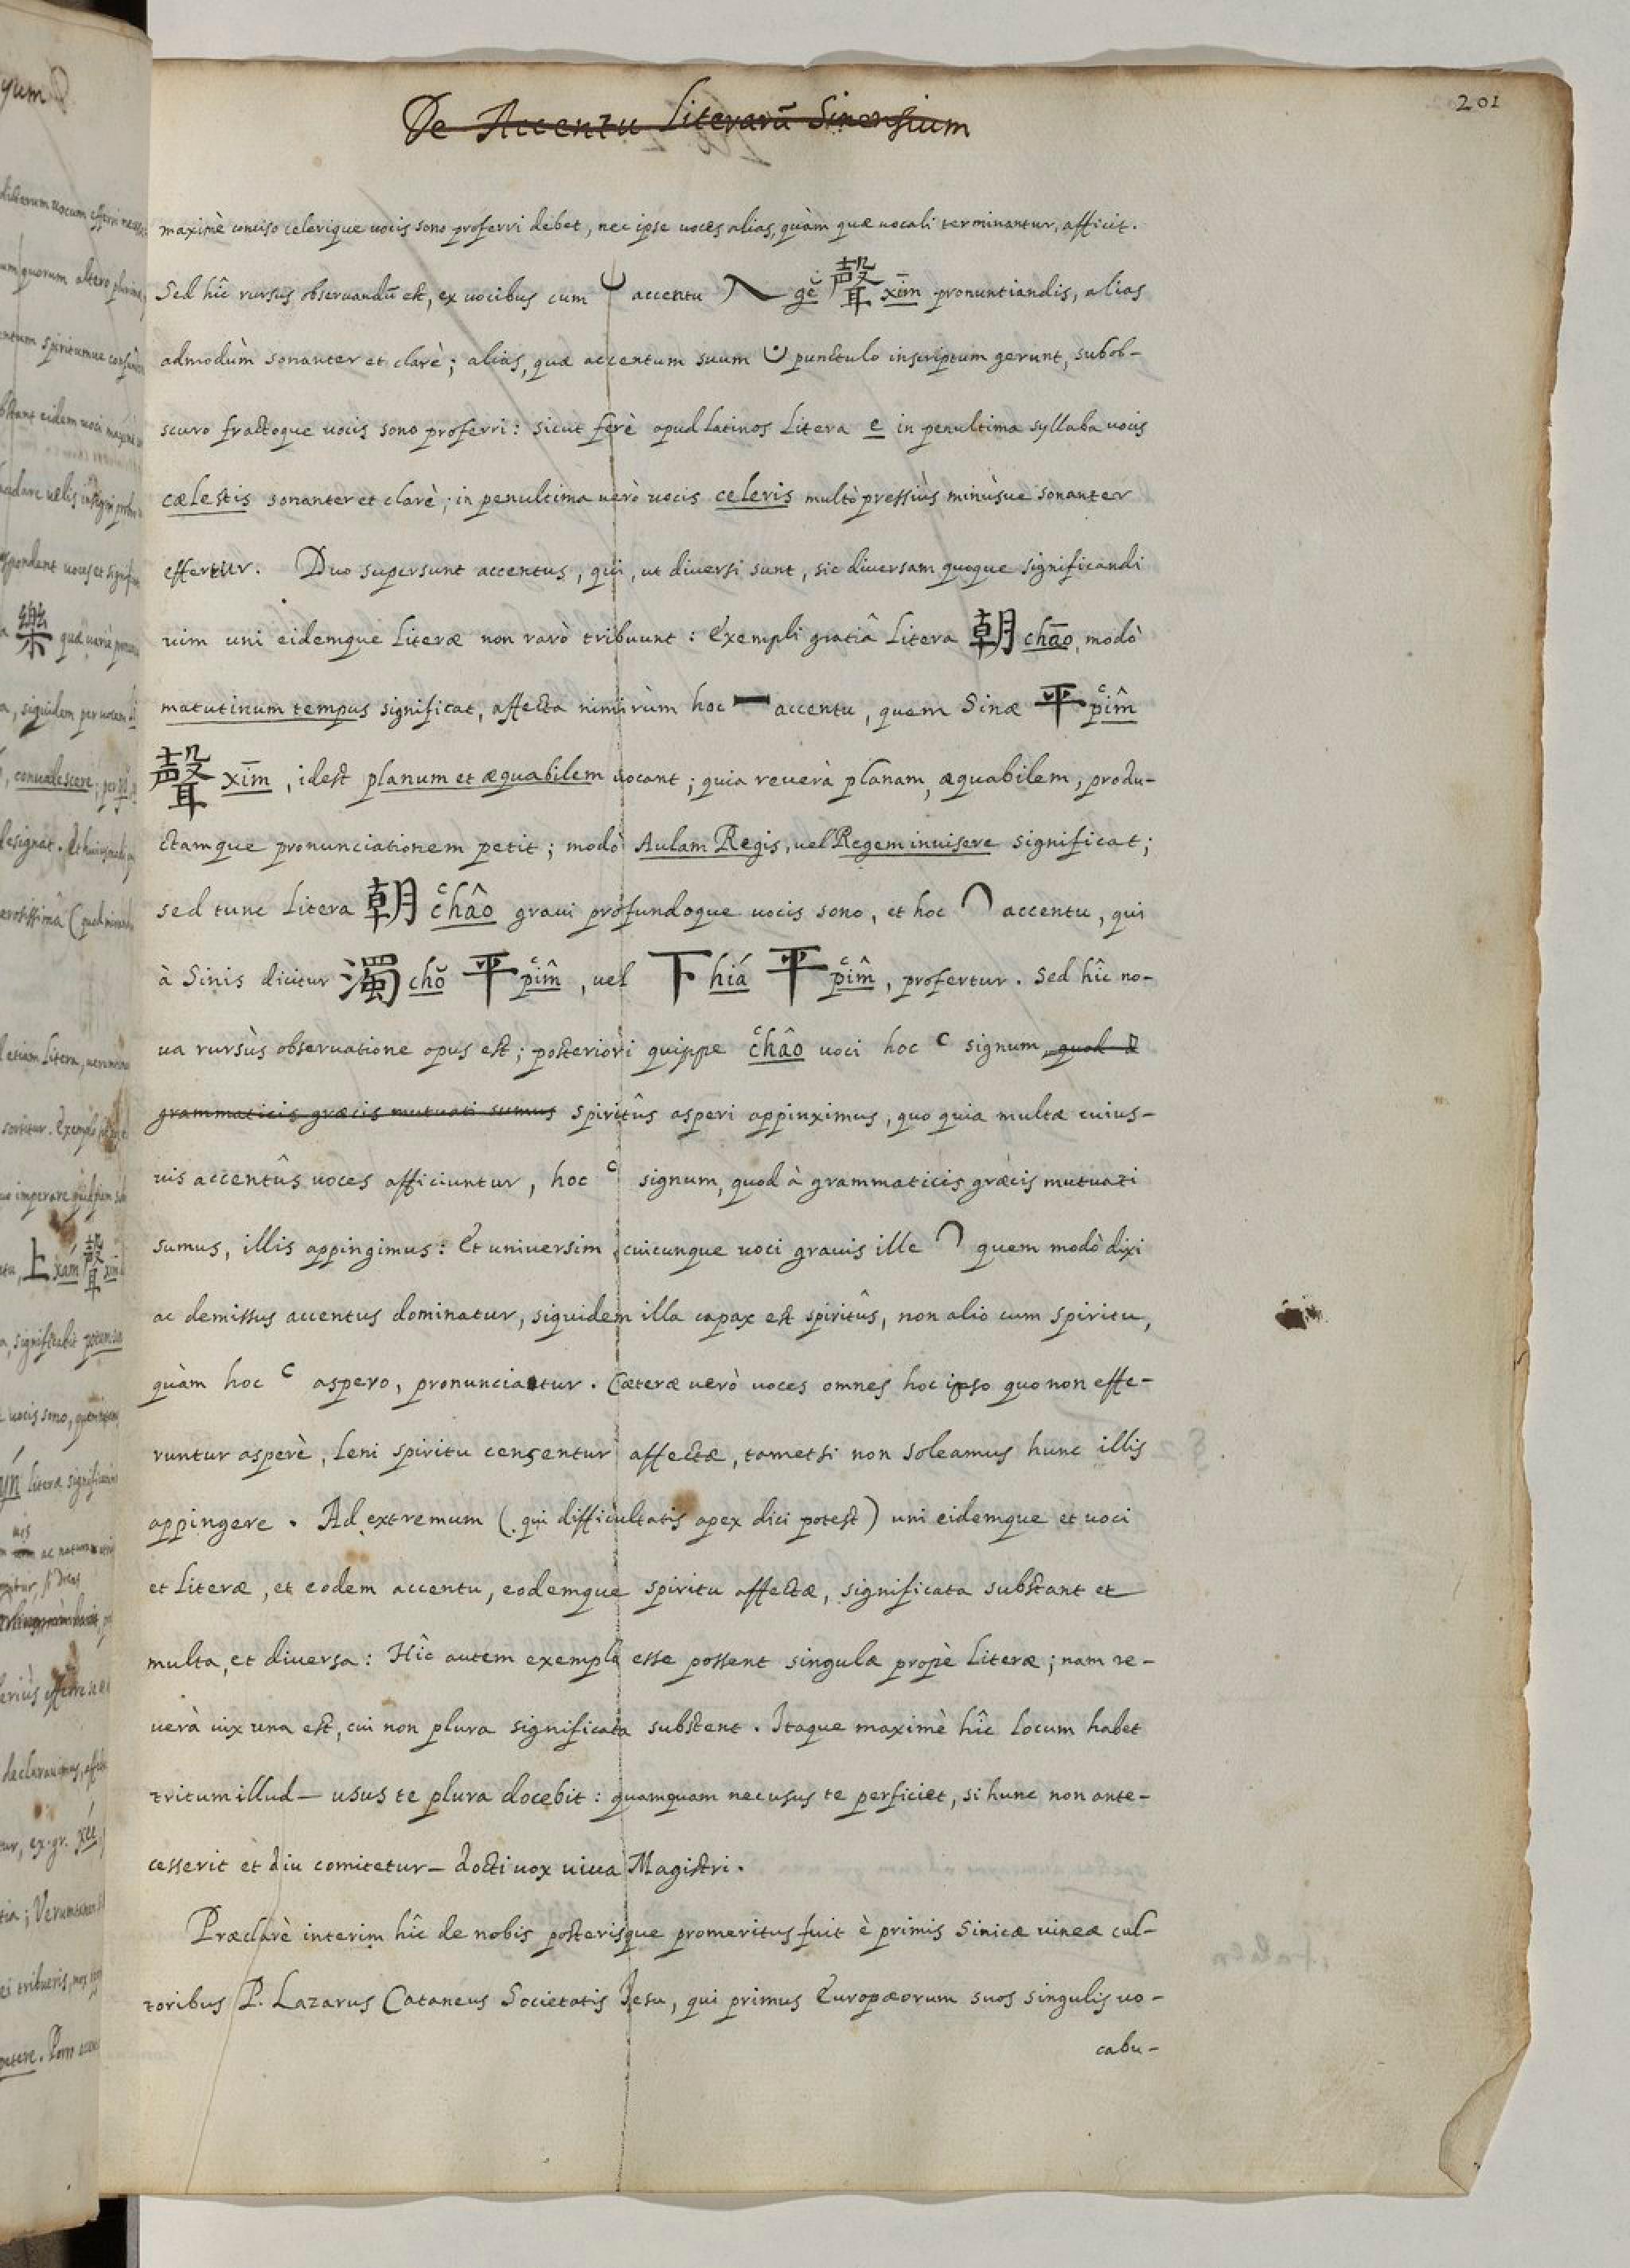 201
De Accentu Literarū Sinensium
maximè conciso celerique uocis sono proferri debet, nec ipse uoces alias, quàm quæ uocali terminantur, afficit.
Sed hîc rursus obseruandū est, ex uocibus cum ᴗ accentu 入 gĕ 聲 xīm pronuntiandis, alias
admodùm sonanter et clarè; alias, quæ accentum suum ᴗ̇ punctulo inscriptum gerunt, subob-
scuro fractoque uocis sono proferri: sicut ferè apud Latinos Litera e in penultima syllaba uocis
cælestis sonanter et clarè; in penultima uerò uocis celeris multò pressiùs minùsue sonanter
effertur. Duo supersunt accentus, qui, ut diuersi sunt, sic diuersam quoque significandi
uim uni eidemque Literæ non rarò tribuunt: Exempli gratiâ Litera 朝 chāo, modò
matutinum tempus significat, affecta nimirùm hoc ー accentu, quem Sinæ 平 pᶜîm
聲 xīm, idest planum et æquabilem uocant; quia reuerà planam, æquabilem, produ-
ctamque pronunciationem petit; modò Aulam Regis, uel Regem inuisere significat;
sed tunc Litera 朝 cᶜhâo graui profundoque uocis sono, et hoc ◠ accentu, qui
à Sinis dicitur 濁 chŏ 平 pᶜîm, uel 下 hiá 平 pᶜîm, profertur. Sed hîc no-
ua rursùs obseruatione opus est; posteriori quippe cᶜhâo uoci hoc ᶜ signum, quod à
grammaticis græcis mutuati sumus spiritûs asperi appinximus, quo quia multæ cuius-
uis accentûs uoces afficiuntur, hoc ᶜ signum, quod à grammaticis græcis mutuati
sumus, illis appingimus: Et uniuersim cuicunque uoci grauis ille ◠ quem modò dixi
ac demissus accentus dominatur, siquidem illa capax est spiritûs, non alio cum spiritu,
quàm hoc ᶜ aspero, pronunciatur. Cæteræ uerò uoces omnes hoc ipso quo non effe-
runtur asperè, leni spiritu censentur affectæ, tametsi non soleamus hunc illis
appingere. Ad extremum (qui difficultatis apex dici potest) uni eidemque et uoci
et Literæ, et eodem accentu, eodemque spiritu affectæ, significata substant et
multa, et diuersa: Hîc autem exempla esse possent singulæ propè Literæ; nam re-
uerà uix una est, cui non plura significata substent. Itaque maximè hîc locum habet
tritum illud — usus te plura docebit: quamquam nec usus te perficiet, si hunc non ante-
cesserit et diu comitetur — docti uox uiua Magistri.
Præclarè interim hîc de nobis posterisque promeritus fuit è primis Sinicæ uineæ cul-
toribus P. Lazarus Cataneus Societatis Jesu, qui primus Europæorum suos singulis uo-
cabu-